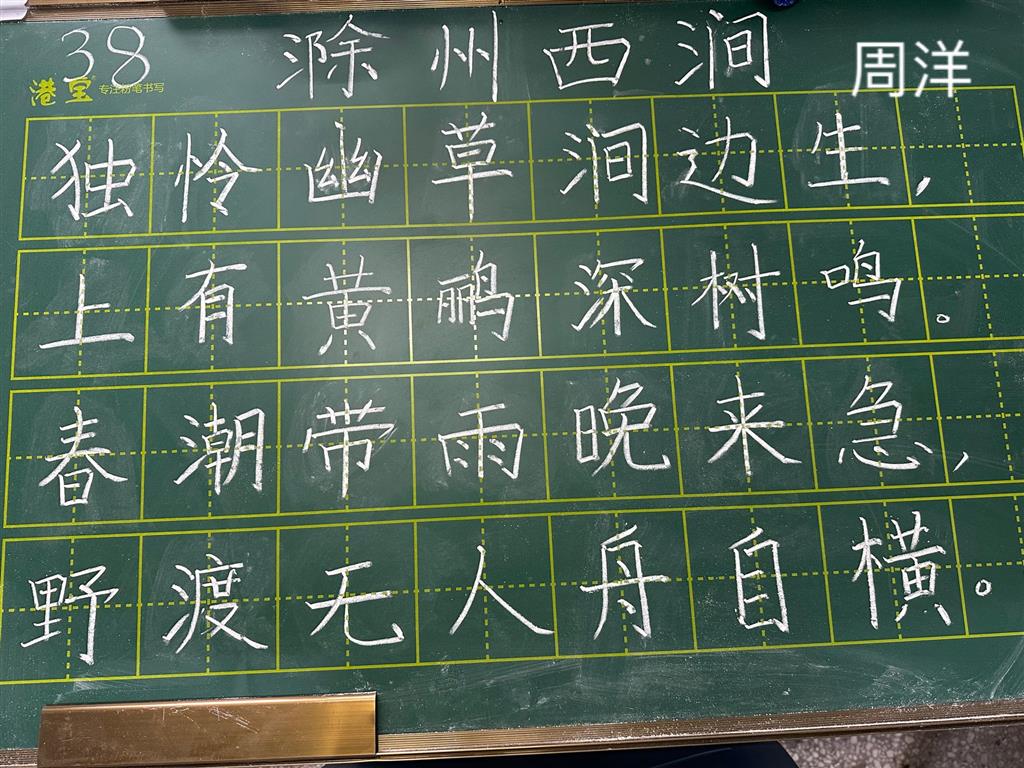 38 滁州西涧 周洋
港宝 专注粉笔书写
独怜幽草涧边生，
上有黄鹂深树鸣。
春潮带雨晚来急，
野渡无人舟自横。